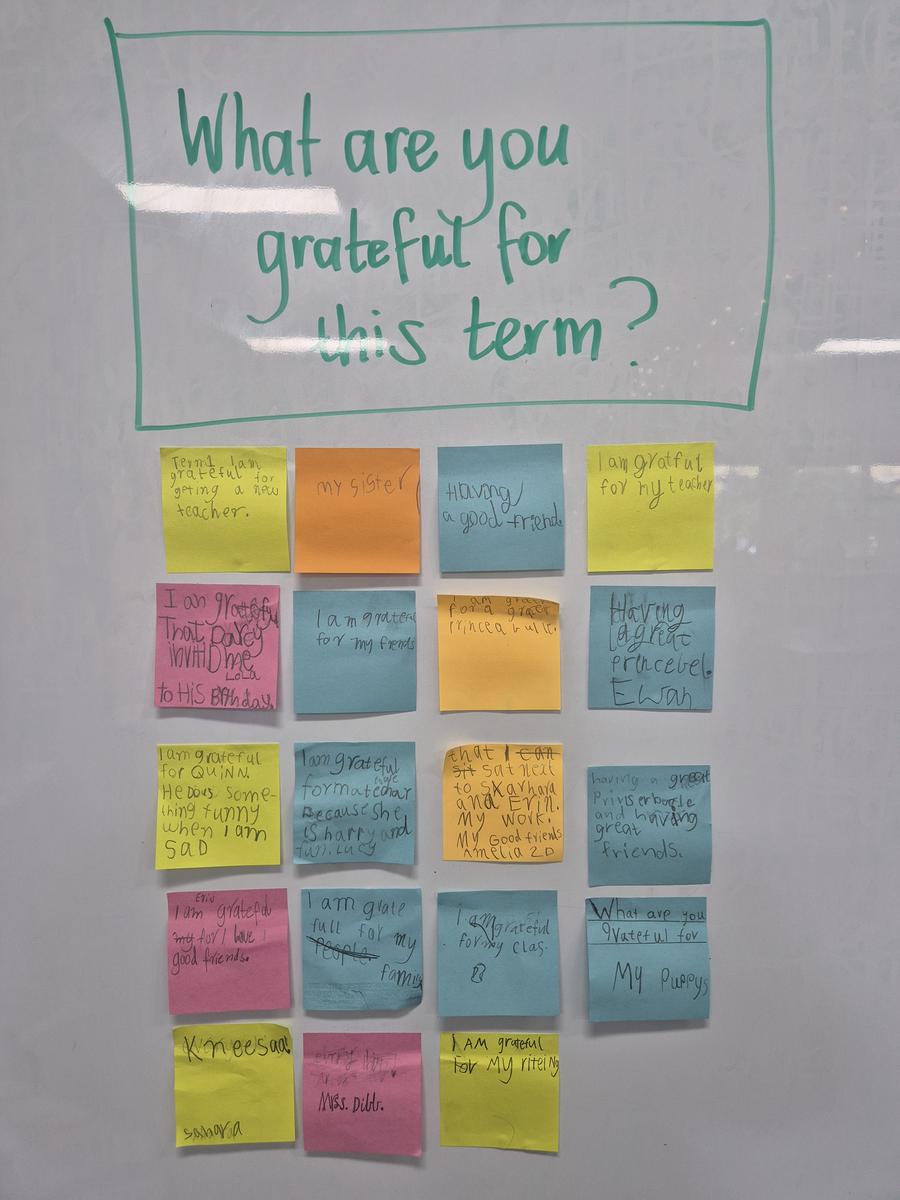 What are you
grateful for
this term?
Term1 I am
grateful for
geting a new
teacher.
my sister
Having
a good friend.
I am gratful
for my teacher
I am grateful
That Darcy
invitiD me
LoLa
to His Birthday.
I am grateful
for my frends
I am grate
for a grate
princeabulle.
Having
a great
princebel.
Ewan
I am grateful
for QuiNN.
He DoDs some-
thing funny
when I am
SAD
I am grateful
for
because she
is harry and
fun. Lucy
that I can
sit sat next
to Skarhara
and Erin.
My work.
My Good friends
Amelia 2D
having a great
Privserbogle
and having
great
friends.
Eriv
I am grateful
my for I love
good friends.
I am grate
full for my
People.
family
I am grateful
for my clas.
What are you
grateful for
My Puppys
Kneesaa!
sahara
Mrss. Dibb.
I AM grateful
for My riteing